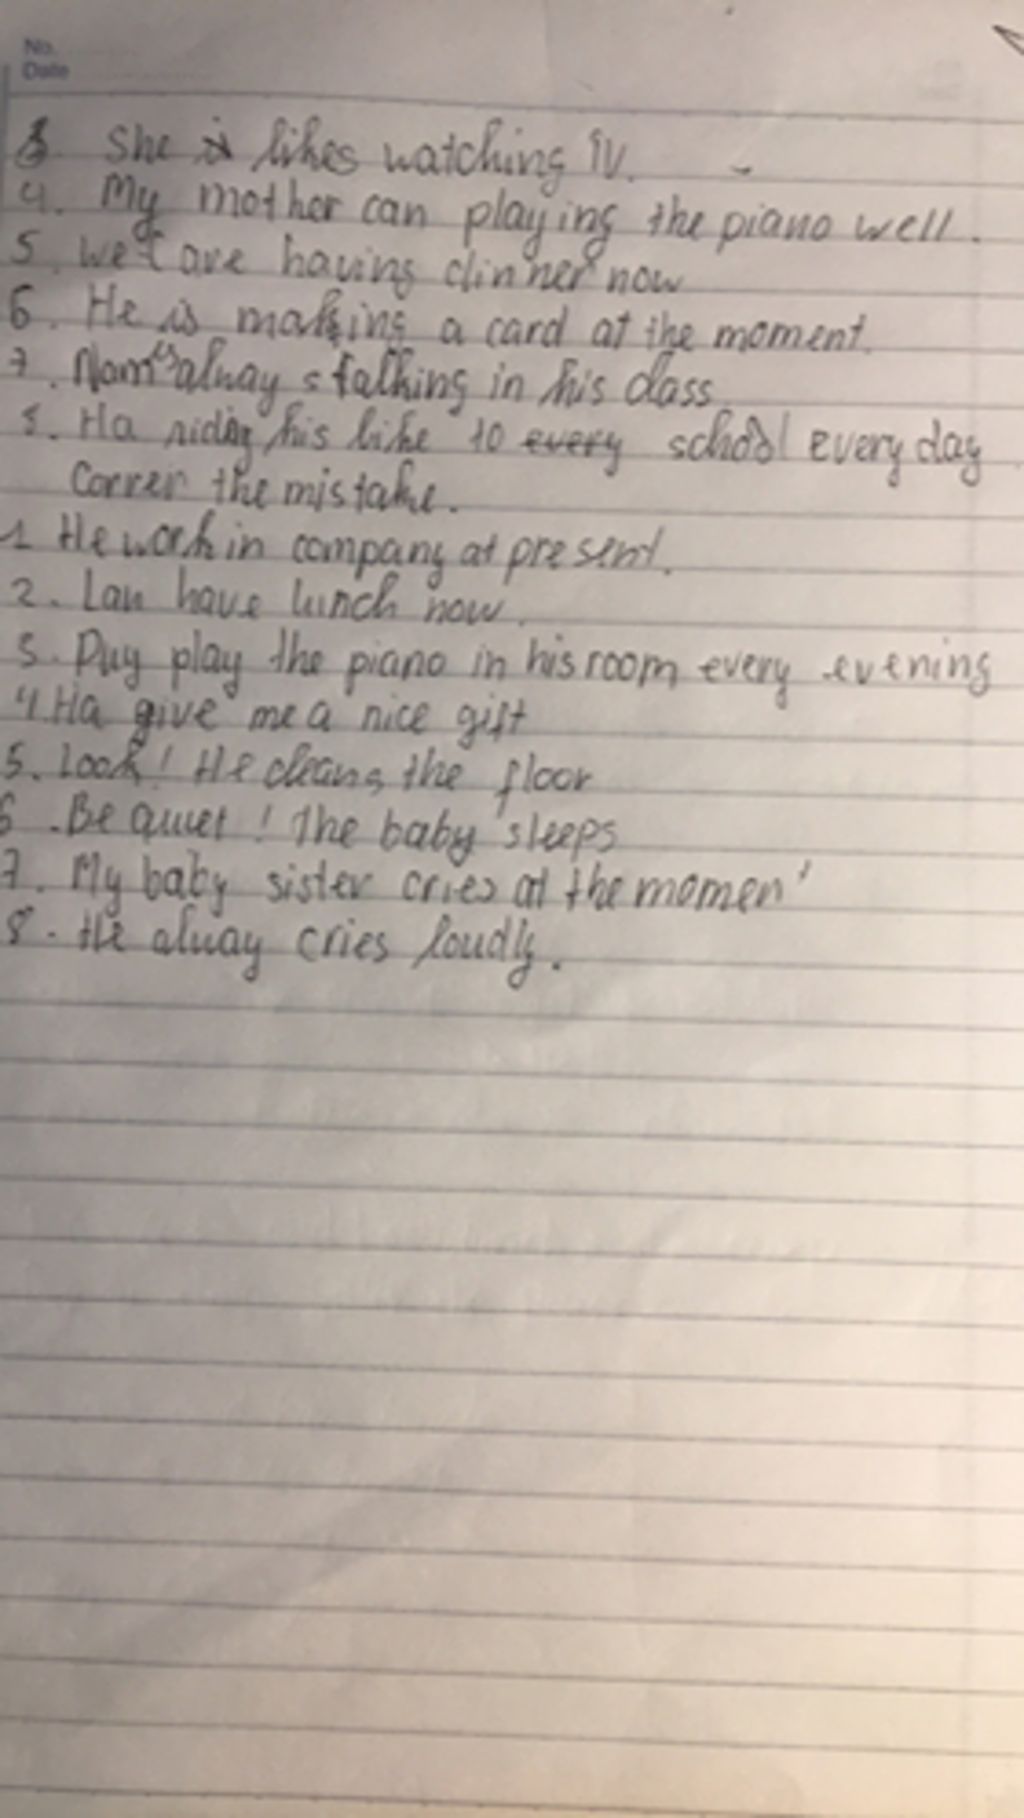 No.
Date
3. She likes watching TV.
4. My mother can playing the piano well.
5. We are having dinner now
6. He is making a card at the moment.
7. Nam always talking in his class
8. Ha riding his bike to every school every day
Correr the mistake.
1. He work in company at present.
2. Lan have lunch now.
3. Duy play the piano in his room every evening
4. Ha give me a nice gift
5. Look! He cleans the floor
6. Be quiet! The baby sleeps
7. My baby sister cries at the moment
8. He alway cries loudly.